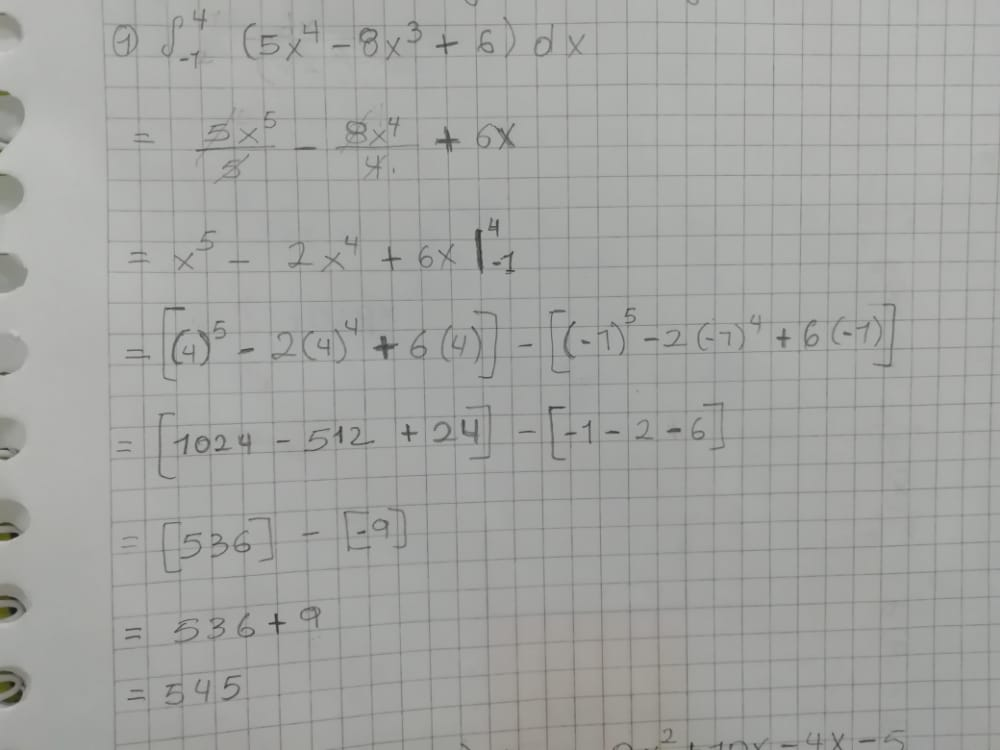 ① ∫₋₁⁴ (5x⁴ - 8x³ + 6) dx
= 5x⁵/5 - 8x⁴/4 + 6x
= x⁵ - 2x⁴ + 6x |₋₁⁴
= [(4)⁵ - 2(4)⁴ + 6(4)] - [(-1)⁵ - 2(-1)⁴ + 6(-1)]
= [1024 - 512 + 24] - [-1 - 2 - 6]
= [536] - [-9]
= 536 + 9
= 545